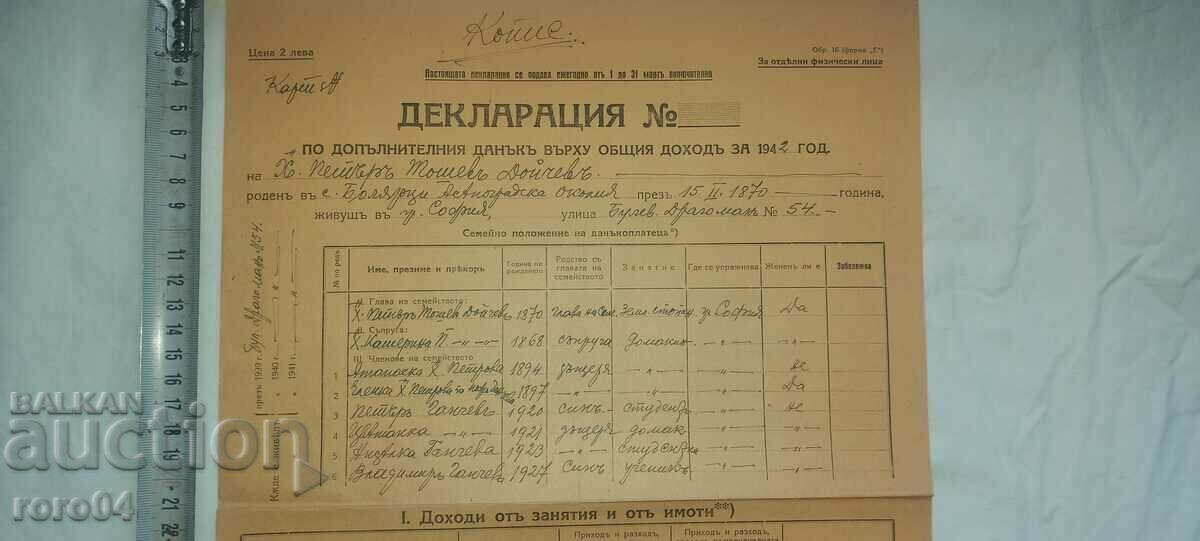 Копие.
Цена 2 лева
Обр. 16 (форма „Е“)
Настоящата декларация се подава ежегодно отъ 1 до 31 мартъ включително
За отдѣлни физически лица
ДЕКЛАРАЦИЯ №
ПО ДОПЪЛНИТЕЛНИЯ ДАНЪКЪ ВЪРХУ ОБЩИЯ ДОХОДЪ ЗА 1942 ГОД.
на Х. Петъръ Тошевъ Дойчевъ.
роденъ въ с. Болярци Асѣновградска околия презъ 15 II. 1870 година,
живущъ въ гр. София, улица Булев. Драгоман № 54.
Семейно положение на данъкоплатеца*)
№ по редъ Име, презиме и прѣкоръ Година на рождението Родство съ главата на семейството Занятие Где се упражнява Жененъ ли е Забележка
I. Глава на семейството:
Х. Петъръ Тошев Дойчевъ 1870 глава на сем. Зем. стопан. гр. София Да
II. Съпруга:
Х. Катерина П. — „ — „ 1868 съпруга домакин. — „ — „
III. Членове на семейството
1 Атанаска Х. Петрова 1894 дъщеря „ — „ — не
2 Еленка Х. Петрова 1897 — „ — „ — „ — Да
3 Петъръ Ганчевъ 1920 синъ студентъ — „ — не
4 Цвѣтанка — „ — 1921 дъщеря домак — „ — „
5 Ганчева 1923 — „ — студентка — „ — „
6 Владимиръ Ганчев 1927 синъ ученикъ — „ — „
Кѫде е живѣлъ:
презъ 1939 г. бул. Драгоман № 54.
1940 г. — „ —
1941 г. — „ —
I. Доходи отъ занятия и отъ имоти**)
Приходъ и разходъ,
Приходъ и разходъ,
BALKAN
auction
roro04
3
4
5
6
7
8
9
10
11
12
13
14
15
16
17
18
19
20
21
22